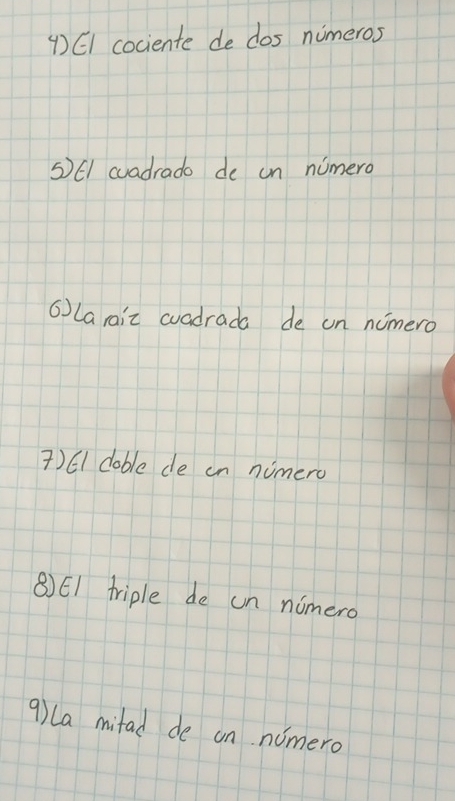 4) El cociente de dos números
5) El cuadrado de un número
6) La raíz cuadrada de un número
7) El doble de un número
8) El triple de un número
9) La mitad de un número